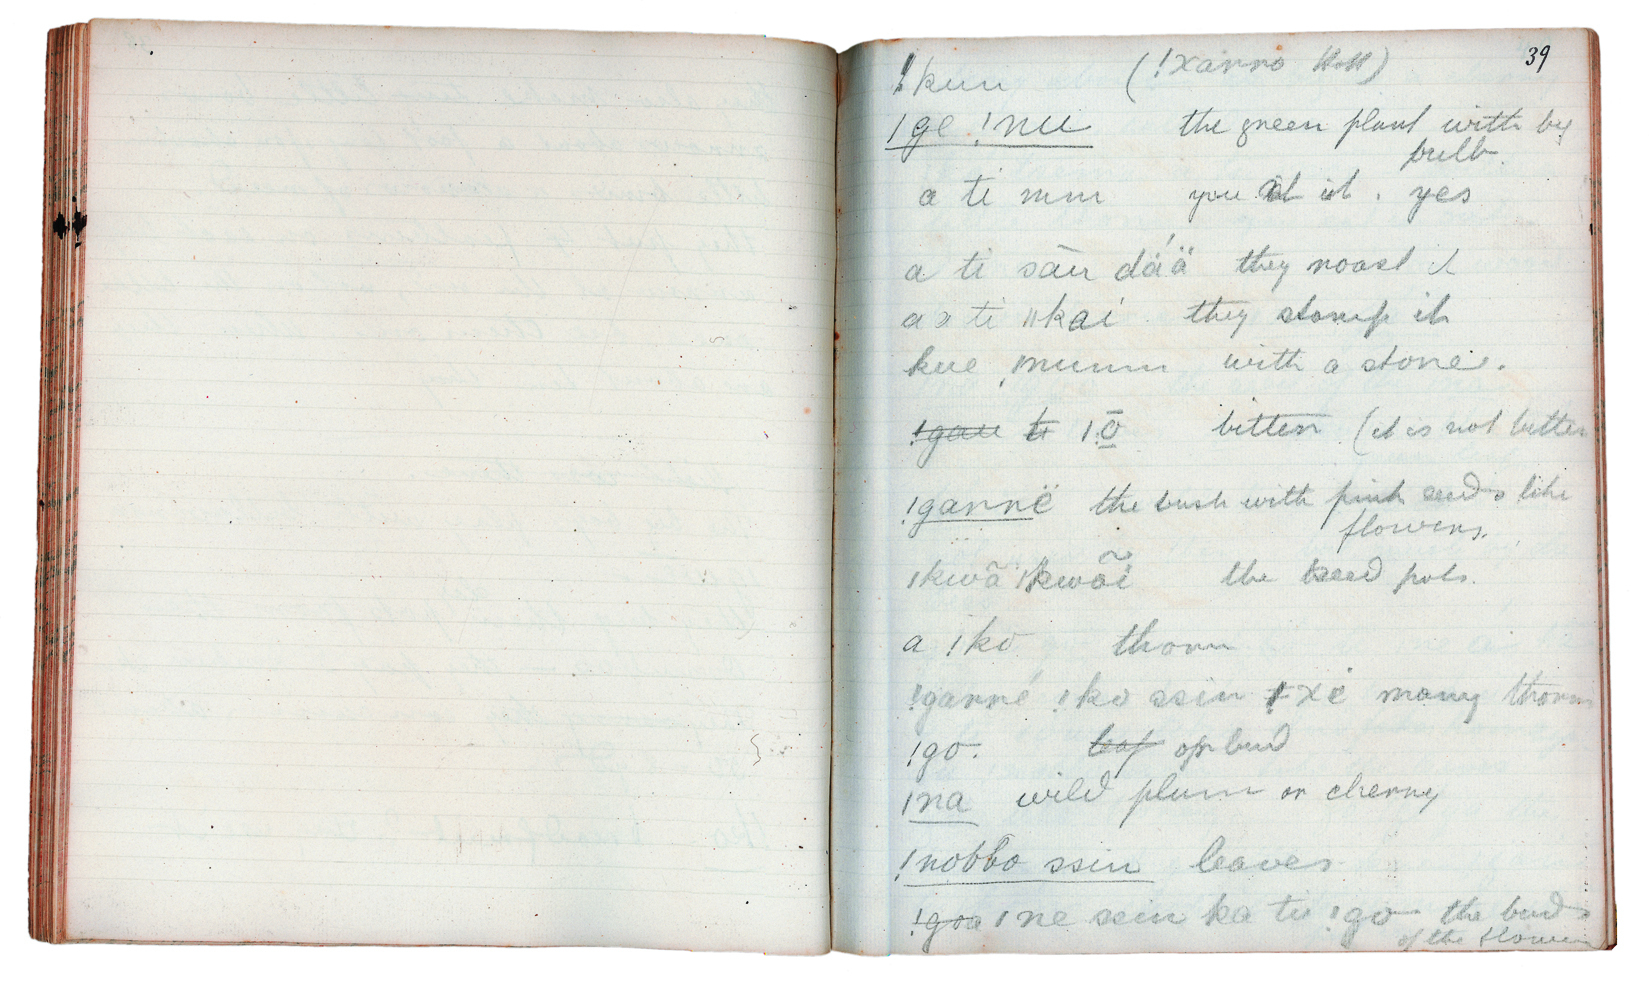 39
!kun (!xanno
|ge !nu the green plant with big
bulb.
a ti mm you it. yes
a ti sāu dáä they roast it
a ti ǁkai they stomp it
kue mumm with a stone.
!gau ti |ō bitter (it is not bitter
!gannë the bush with pink seeds like
flowers.
|kwã |kwãi the seed pots.
a !ko thorn
!ganné !ko ssin ǂxé many thorns
!go. leaf or bud
|na wild plum or cherry
!nobbo ssin leaves
!goa |ne ssin ka tu !go the buds
of the flower